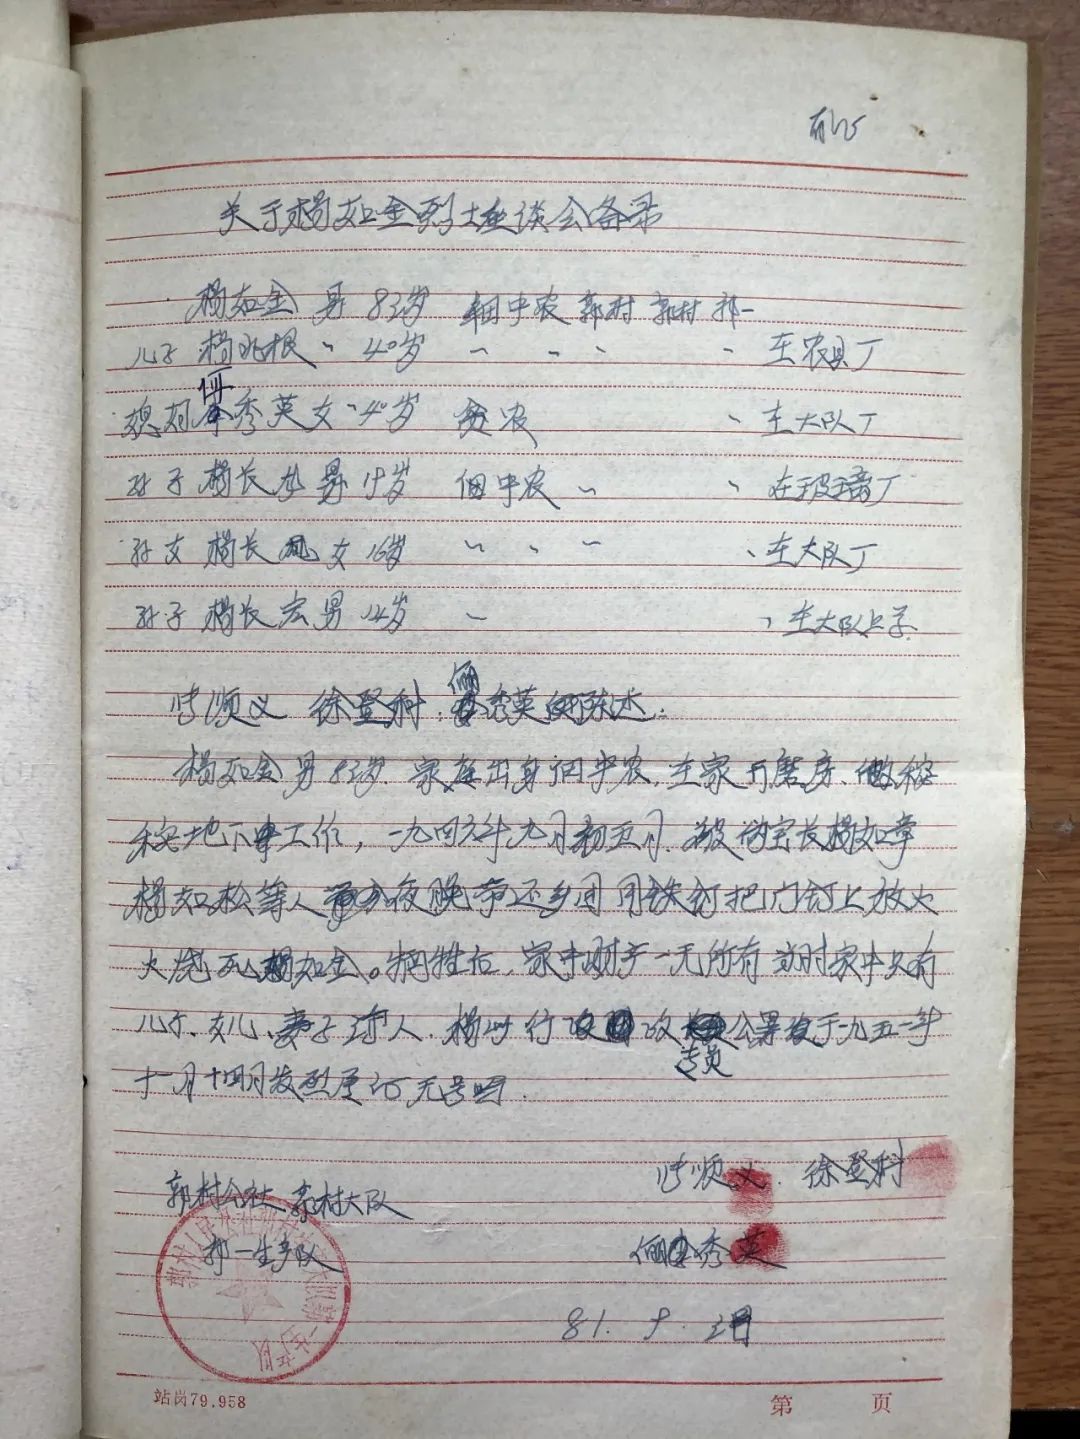 关于杨如金烈士座谈会备录
杨如金 男 83岁 佃中农 郭村 郭村 郭一
儿子 杨兆根 〃 40岁 〃 〃 〃 〃 在农具厂
媳妇 秀英 女 40岁 贫农 〃 在大队厂
孙子 杨长 男 19岁 佃中农 〃 〃 在玻璃厂
孙女 杨长凤 女 16岁 〃 〃 〃 〃 在大队厂
孙子 杨长宏 男 12岁 〃 〃 在大队上学
顺义 徐登科 秀英 陈述:
杨如金 男 83岁. 家庭出身佃中农. 在家开磨房、做
地下工作, 一九四六年九月初五日. 被伪保长杨如章
杨如松等人 夜晚带还乡团用铁钉把门钉上放火
火烧死杨如金。牺牲后. 家中财产一无所有 当时家中只有
儿子、女儿、妻子 人. 行政 专员 公署 于一九五一年
十一月十四日发烈属证 无号码.
顺义. 徐登科
郭村公社 郭村大队
郭一生产队
秀英
81. 9. 2日
站岗79.958
第 页